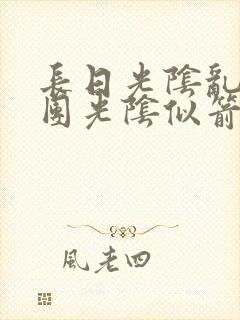 長日光陰亂
團光陰似箭
風老四